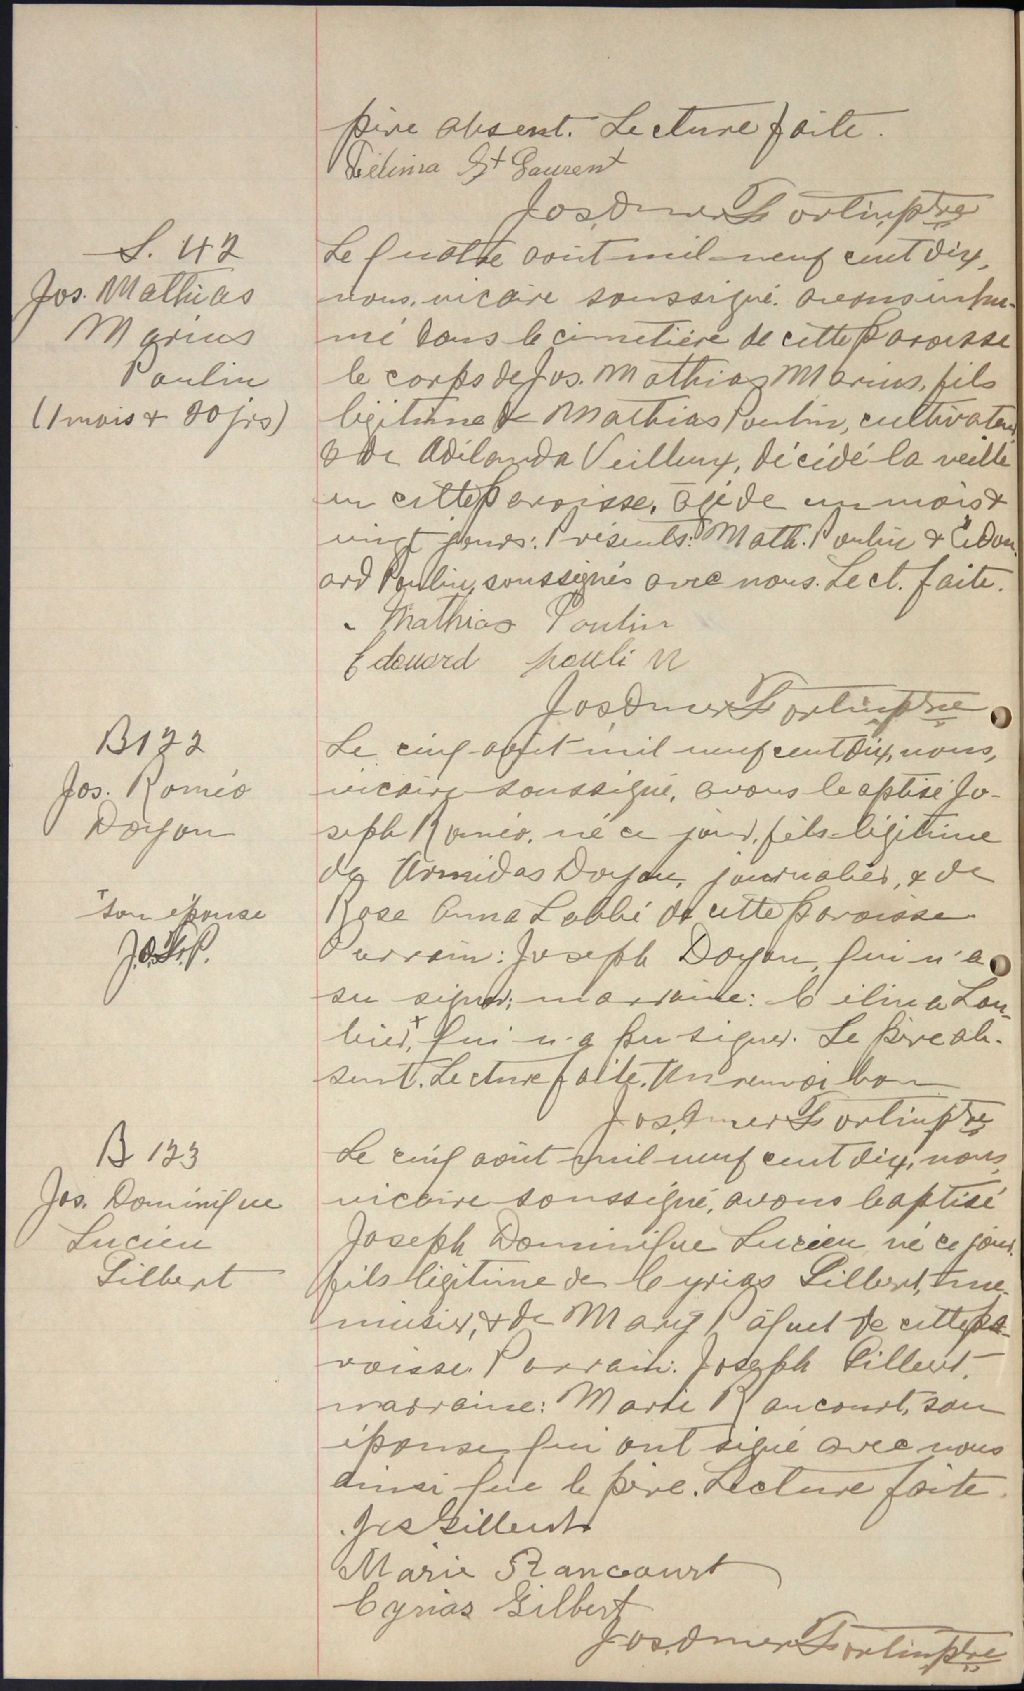 père absent. Lecture faite.
Télina St Laurent
Jos. Omer Fortin, ptre
S. 42
Jos. Mathias
Marius
Poulin
(1 mois & 20 jrs)
Le quatre août mil-neuf cent dix,
nous, vicaire soussigné. avons inhu-
mé dans le cimetière de cette Paroisse
le corps de Jos. Mathias Marius, fils
légitime de Mathias Poulin, cultivateur
& de Adilanda Veilleux, décédé la veille
en cette Paroisse, âgé de un mois &
vingt jours. Présents: Math. Poulin & Edou-
ard Poulin, soussignés avec nous. Lect. faite.
Mathias Poulin
Edouard poulin
Jos. Omer Fortin, ptre
B 122
Jos. Roméo
Doyon
+ son épouse
J.O.F.P.
Le cinq août mil neuf cent dix, nous,
vicaire soussigné, avons baptisé Jo-
seph Roméo, né ce jour, fils légitime
de Armidas Doyon, journalier, & de
Rose Anna Labbé de cette paroisse
Parrain: Joseph Doyon, qui n'a
su signer; marraine: Célina Lou-
bier,+ qui n'a pu signer. Le père ab-
sent. Lecture faite. Un renvoi bon
Jos. Omer Fortin, ptre
B 123
Jos. Dominique
Lucien
Gilbert
Le cinq août mil neuf cent dix, nous,
vicaire soussigné, avons baptisé
Joseph Dominique Lucien, né ce jour,
fils légitime de Cyrias Gilbert, me-
nuisier, & de Mary Pâquet de cette pa-
roisse. Parrain: Joseph Gilbert,
marraine: Marie Rancourt, son
épouse, qui ont signé avec nous
ainsi que le père. Lecture faite.
Jos Gilbert
Marie Rancourt
Cyrias Gilbert
Jos. Omer Fortin, ptre